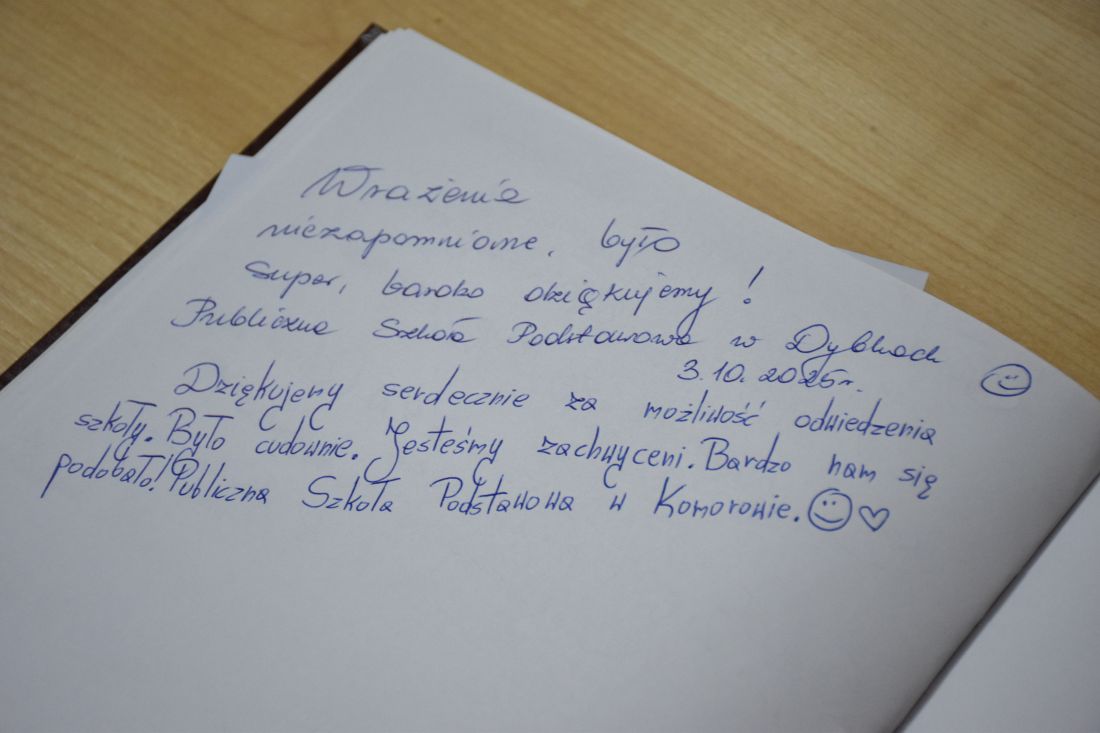 Wrażenia
niezapomniane, było
super, bardzo dziękujemy!
Publiczna Szkoła Podstawowa w Dybkach
3.10.2025r.
Dziękujemy serdecznie za możliwość odwiedzenia
szkoły. Było cudownie. Jesteśmy zachwyceni. Bardzo nam się
podobało! Publiczna Szkoła Podstawowa w Komorowie.